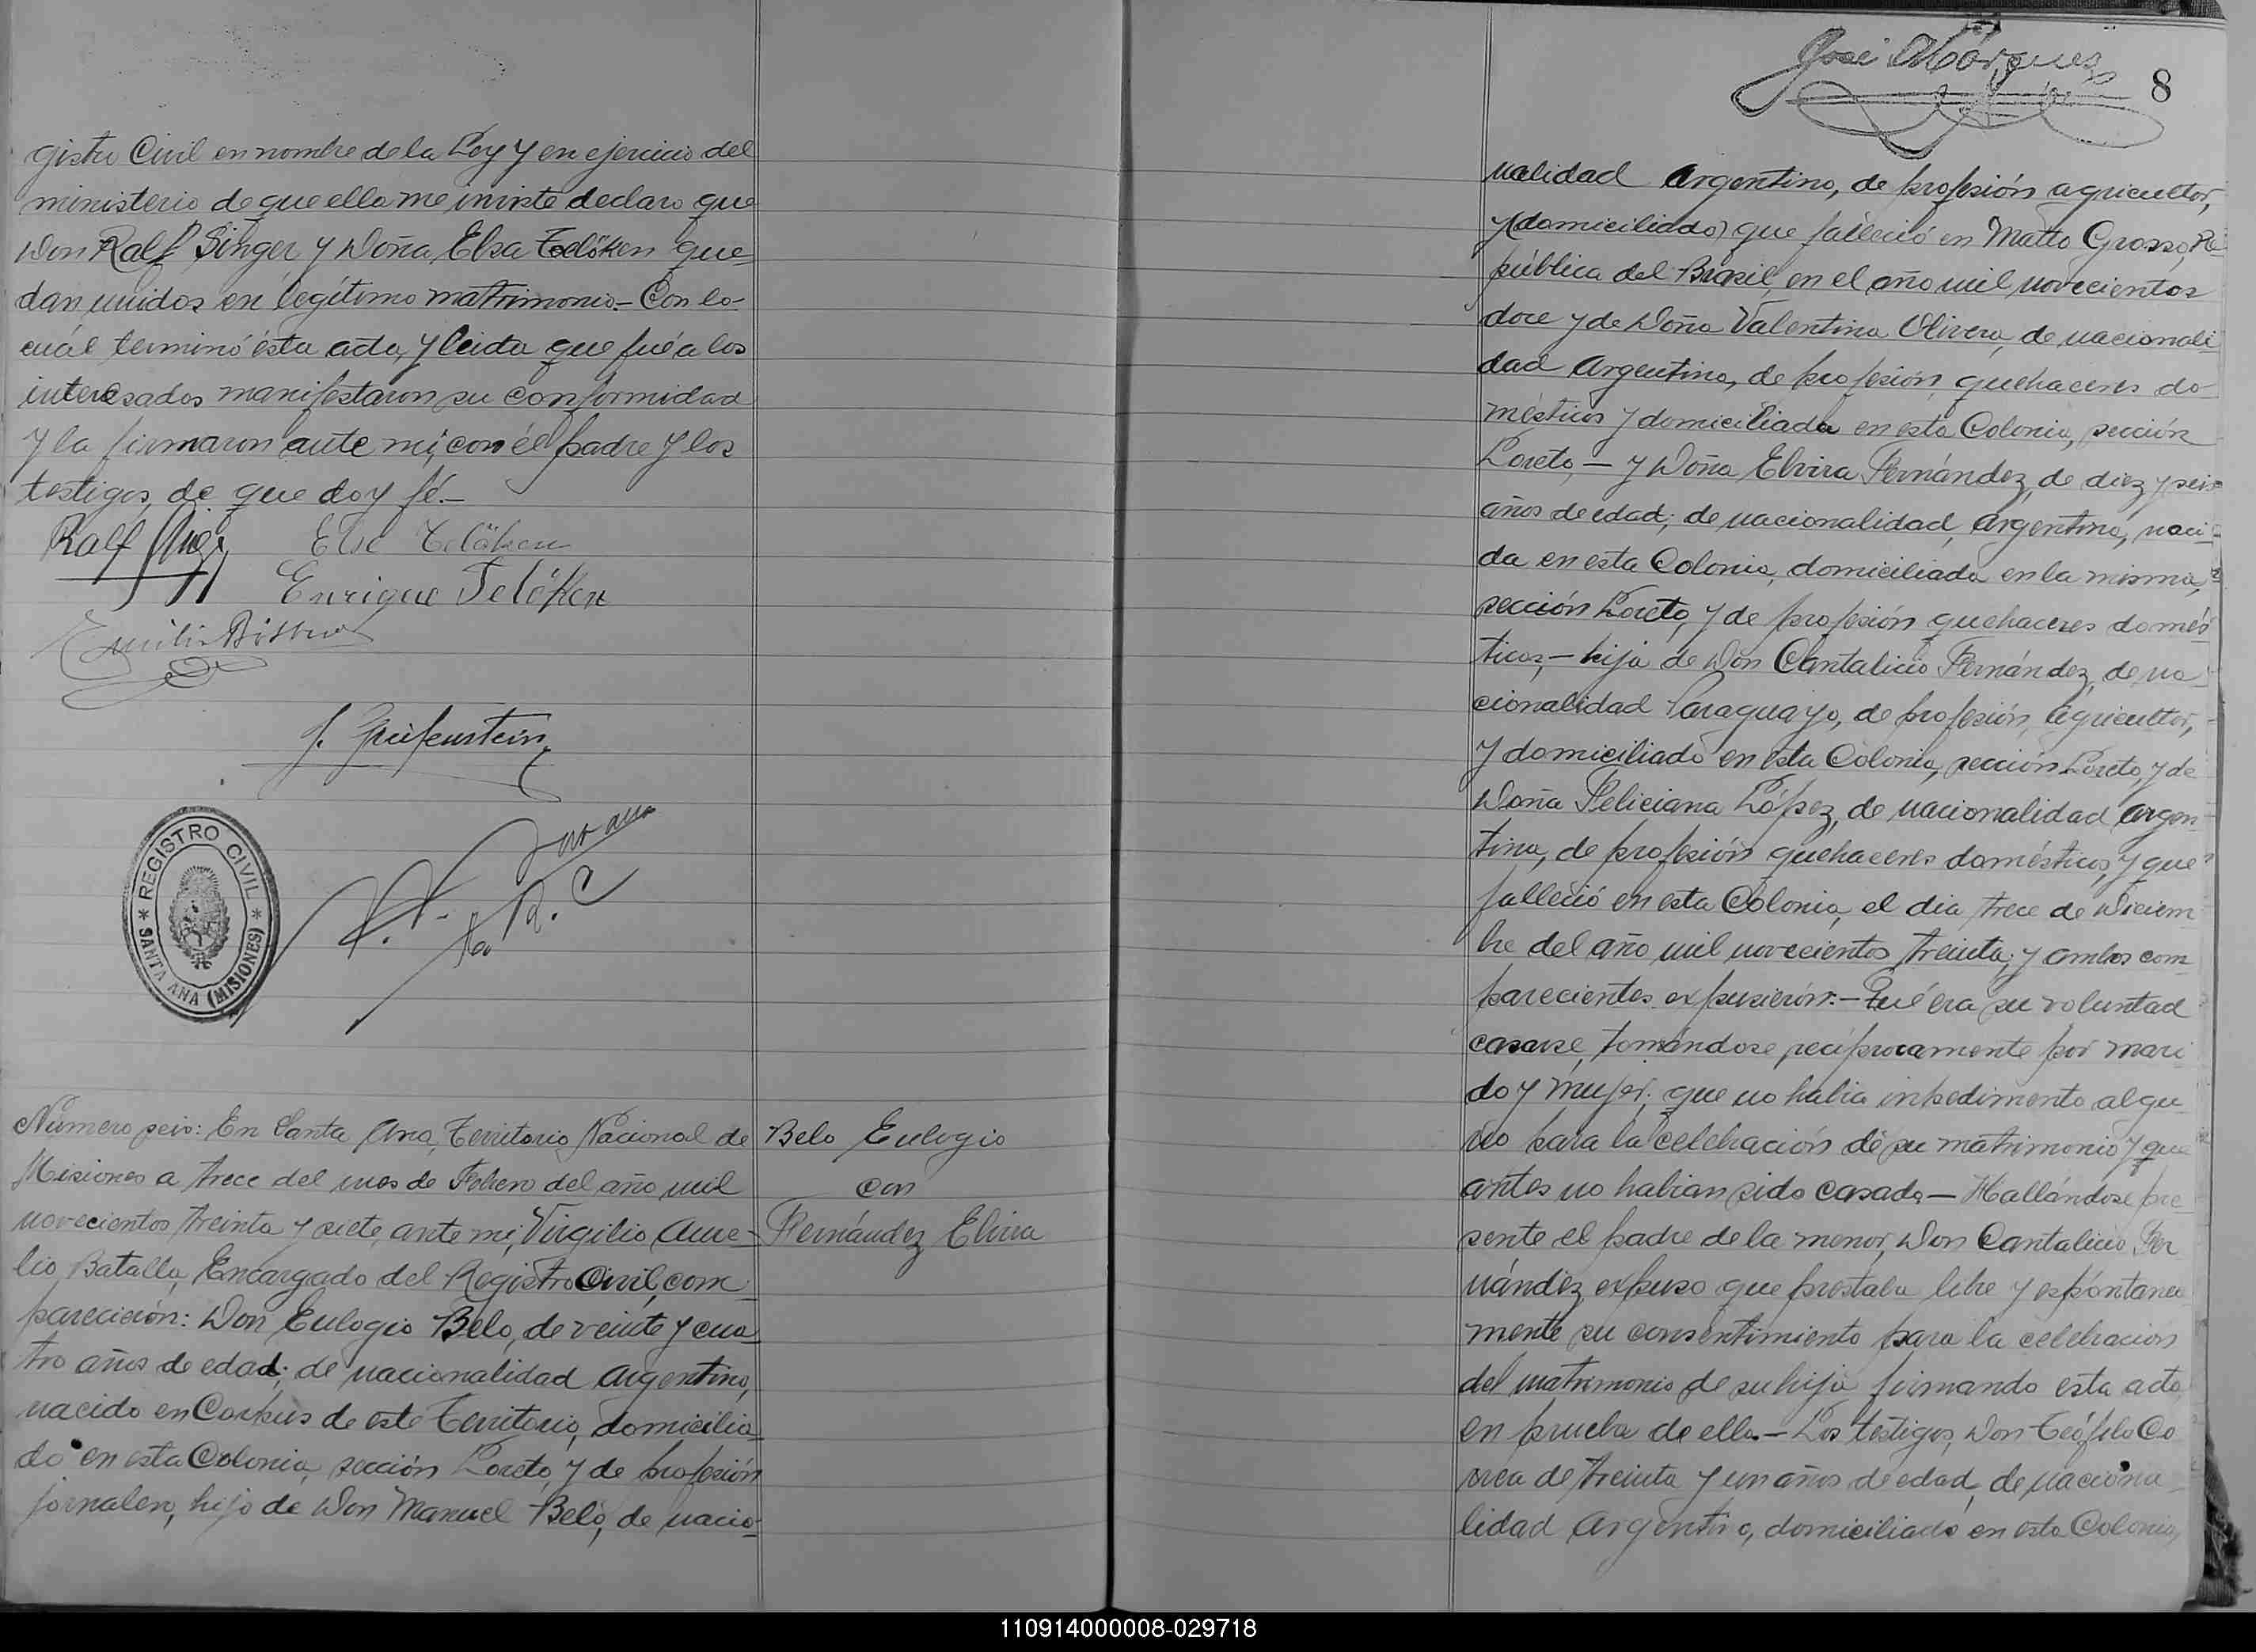 gistro Civil en nombre de la Ley y en ejercicio del
ministerio de que ella me inviste declaro que
Don Ralf Singer y Doña Elsa Telöken que-
dan unidos en legítimo matrimonio.- Con lo-
cuál terminó ésta acta, y leida que fué a los
interesados manifestaron su conformidad
y la firmaron ante mi, con él padre y los
testigos, de que doy fé.-
Ralf
Else Telöken
Enrique Telöken
Emilio
J. Greifenstein
REGISTRO CIVIL
* SANTA ANA (MISIONES) *
Número seis: En Santa Ana, Territorio Nacional de
Misiones a trece del mes de Febrero del año mil
novecientos treinta y siete, ante mi, Virgilio Aure-
lio Batalla, Encargado del Registro Civil, com-
parecierón: Don Eulogio Belo, de veinte y cua-
tro años de edad; de nacionalidad Argentino,
nacido en Corpus de este Territorio, domicilia-
do en esta Colonia, sección Loreto, y de profesión
jornalero, hijo de Don Manuel Beló, de nacio-
Belo Eulogio
con
Fernández Elvira
José Márquez
8
nalidad Argentino, de profesión agricultor,
y (domiciliado) que falleció en Matto Grosso, Re-
pública del Brasil, en el año mil novecientos
doce y de Doña Valentina Olivera, de nacionali-
dad Argentina, de profesión, quehaceres do-
mésticos y domiciliada en esta Colonia, sección
Loreto,- y Doña Elvira Fernández, de diez y seis
años de edad; de nacionalidad, Argentina, naci-
da en esta Colonia, domiciliada en la misma,
sección Loreto, y de profesión quehaceres domés-
ticos,- hija de Don Cantalicio Fernández, de na-
cionalidad Paraguayo, de profesión, agricultor,
y domiciliado en ésta Colonia, sección Loreto, y de
Doña Feliciana López, de nacionalidad Argen-
tina, de profesión quehaceres domésticos, y que
falleció en esta Colonia, el dia trece de Diciem-
bre del año mil novecientos treinta; y ambos com
parecientes expusierón:- Qué era su voluntad
casarse, tomándose recíprocamente por mari
do y mujer; que no habia inpedimento algu
no para la celebración de su matrimonio y que
antes no habian sido casado - Hallándose pre
sente el padre de la menor, Don Cantalicio Fer
nández, expuso que prestaba libre y espóntanea
mente su consentimiento para la celebración
del matrimonio de su hija firmando esta acta
en prueba de ello.- Los testigos, Don Teófilo Co
rrea de treinta y un años de edad, de naciona
lidad Argentino, domiciliado en esta Colonia,
110914000008-029718